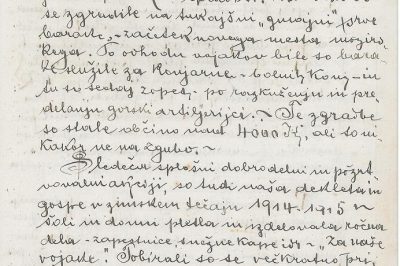 se zgradile na tukajšni „gmajni“ prve
barake, začetek novega mesta mozir-
skega. Po odhodu vojakov bile so bara-
ke služile za konjarne - bolnih konj - in
tu so sedaj zopet, po razkuženju in pre-
delanju gorski artiljerijci. - Te zgradbe
so stale občino nad 4000 K, ali to ni-
kakor ne na zgubo. -
Sledeča splošni dobrodelni in požrt
vovalni akciji, so tudi naša dekleta in
gospe v zimskem tečaju 1914-1915 v
šoli in doma pletla in izdelovala ročna
dela - zapestnice, snežne kape itd - „Za naše
vojake“. Pobirali so se večkratno pri